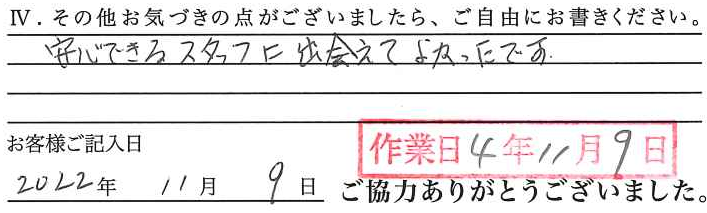 Ⅳ．その他お気づきの点がございましたら、ご自由にお書きください。
安心できるスタッフに出会えてよかったです.
お客様ご記入日
作業日4年11月9日
2022年 11月 9日
ご協力ありがとうございました。